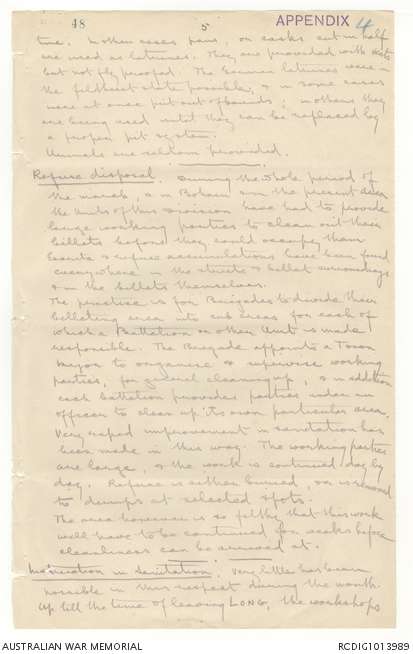 48 5 APPENDIX 4
time. In other cases pans, or casks cut in half
are used as latrines. They are provided with seats
but not fly proofed. The German latrines were in
the filthiest state possible, & in some cases
were at once put out of bounds; in others they
are being used until they can be replaced by
a proper pit system.
Urinals are seldom provided.
Refuse disposal. During the whole period of
the march, & in Bohain and in the present area
the Units of this Division have had to provide
large working parties to clean out their
billets before they could occupy them
Excreta & refuse accumulations have been found
everywhere in the streets & billet surroundings
& in the billets themselves.
The practice is for Brigades to divide their
billeting area into sub areas for each of
which a Battalion or other Unit is made
responsible. The Brigade appoints a Town
Major to organise & supervise working
parties, for general cleaning up, & in addition
each battalion provides parties under an
officer to clean up its own particular area.
Very rapid improvement in sanitation has
been made in this way. The working parties
are large, & the work is continued day by
day. Refuse is either burned, or is removed
to dumps at selected spots.
The area however is so filthy that this work
will have to be continued for weeks before
cleanliness can be arrived at.
Instruction in Sanitation. Very little has been
possible in this respect during the month.
Up till the time of leaving LONG, the workshops
AUSTRALIAN WAR MEMORIAL RCDIG1013989